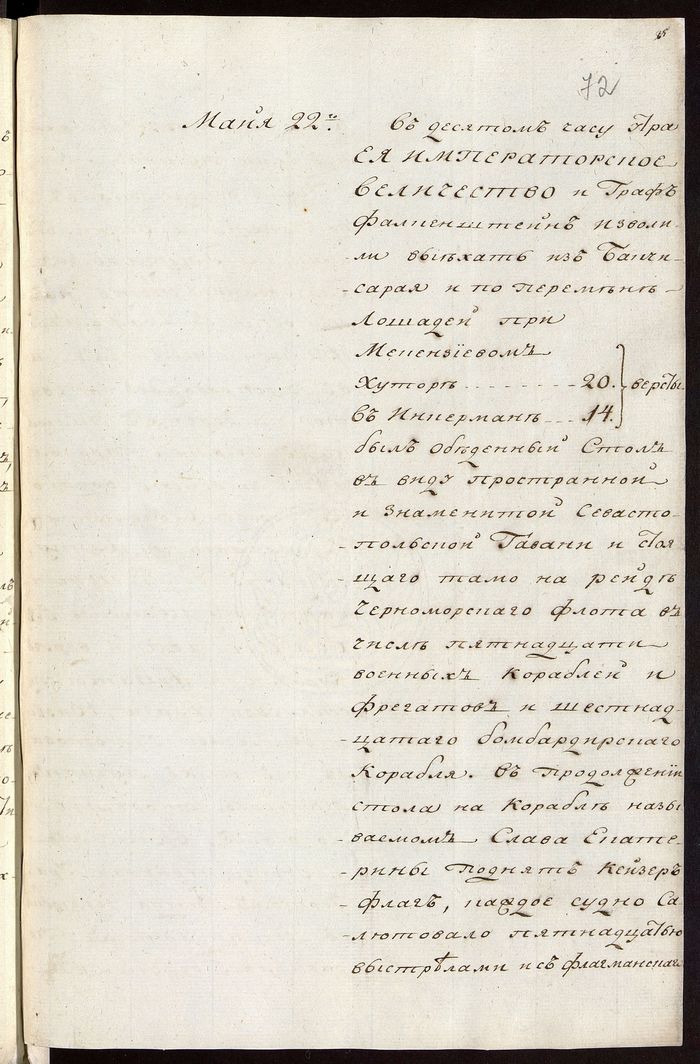 72
Маия 22го.
въ десятомъ часу утра
ЕЯ ИМПЕРАТОРСКОЕ
ВЕЛИЧЕСТВО и Графъ
Фалкенштейнъ изволи-
-ли выѣхать изъ Бахчи-
-сарая и по перемѣнѣ
-Лошадей при
Мекензіевомъ
Хуторѣ 20. верстъ.
въ Инкерманѣ 14.
былъ обѣденный Столъ
въ виду пространной
и знаменитой Севасто-
-польской Гавани и стоя
-щаго тамо на рейдѣ
Черноморскаго флота въ
числѣ пятнадцати
военныхъ кораблей и
фрегатовъ и шестнад-
-цатаго бомбардирскаго
Корабля. въ продолженіи
стола на Кораблѣ назы
-ваемомъ Слава Екате-
-рины поднятъ Кейзеръ
-флагъ, каждое судно Са
-лютовало пятнадцатью
выстрѣлами и съ флагманскаго